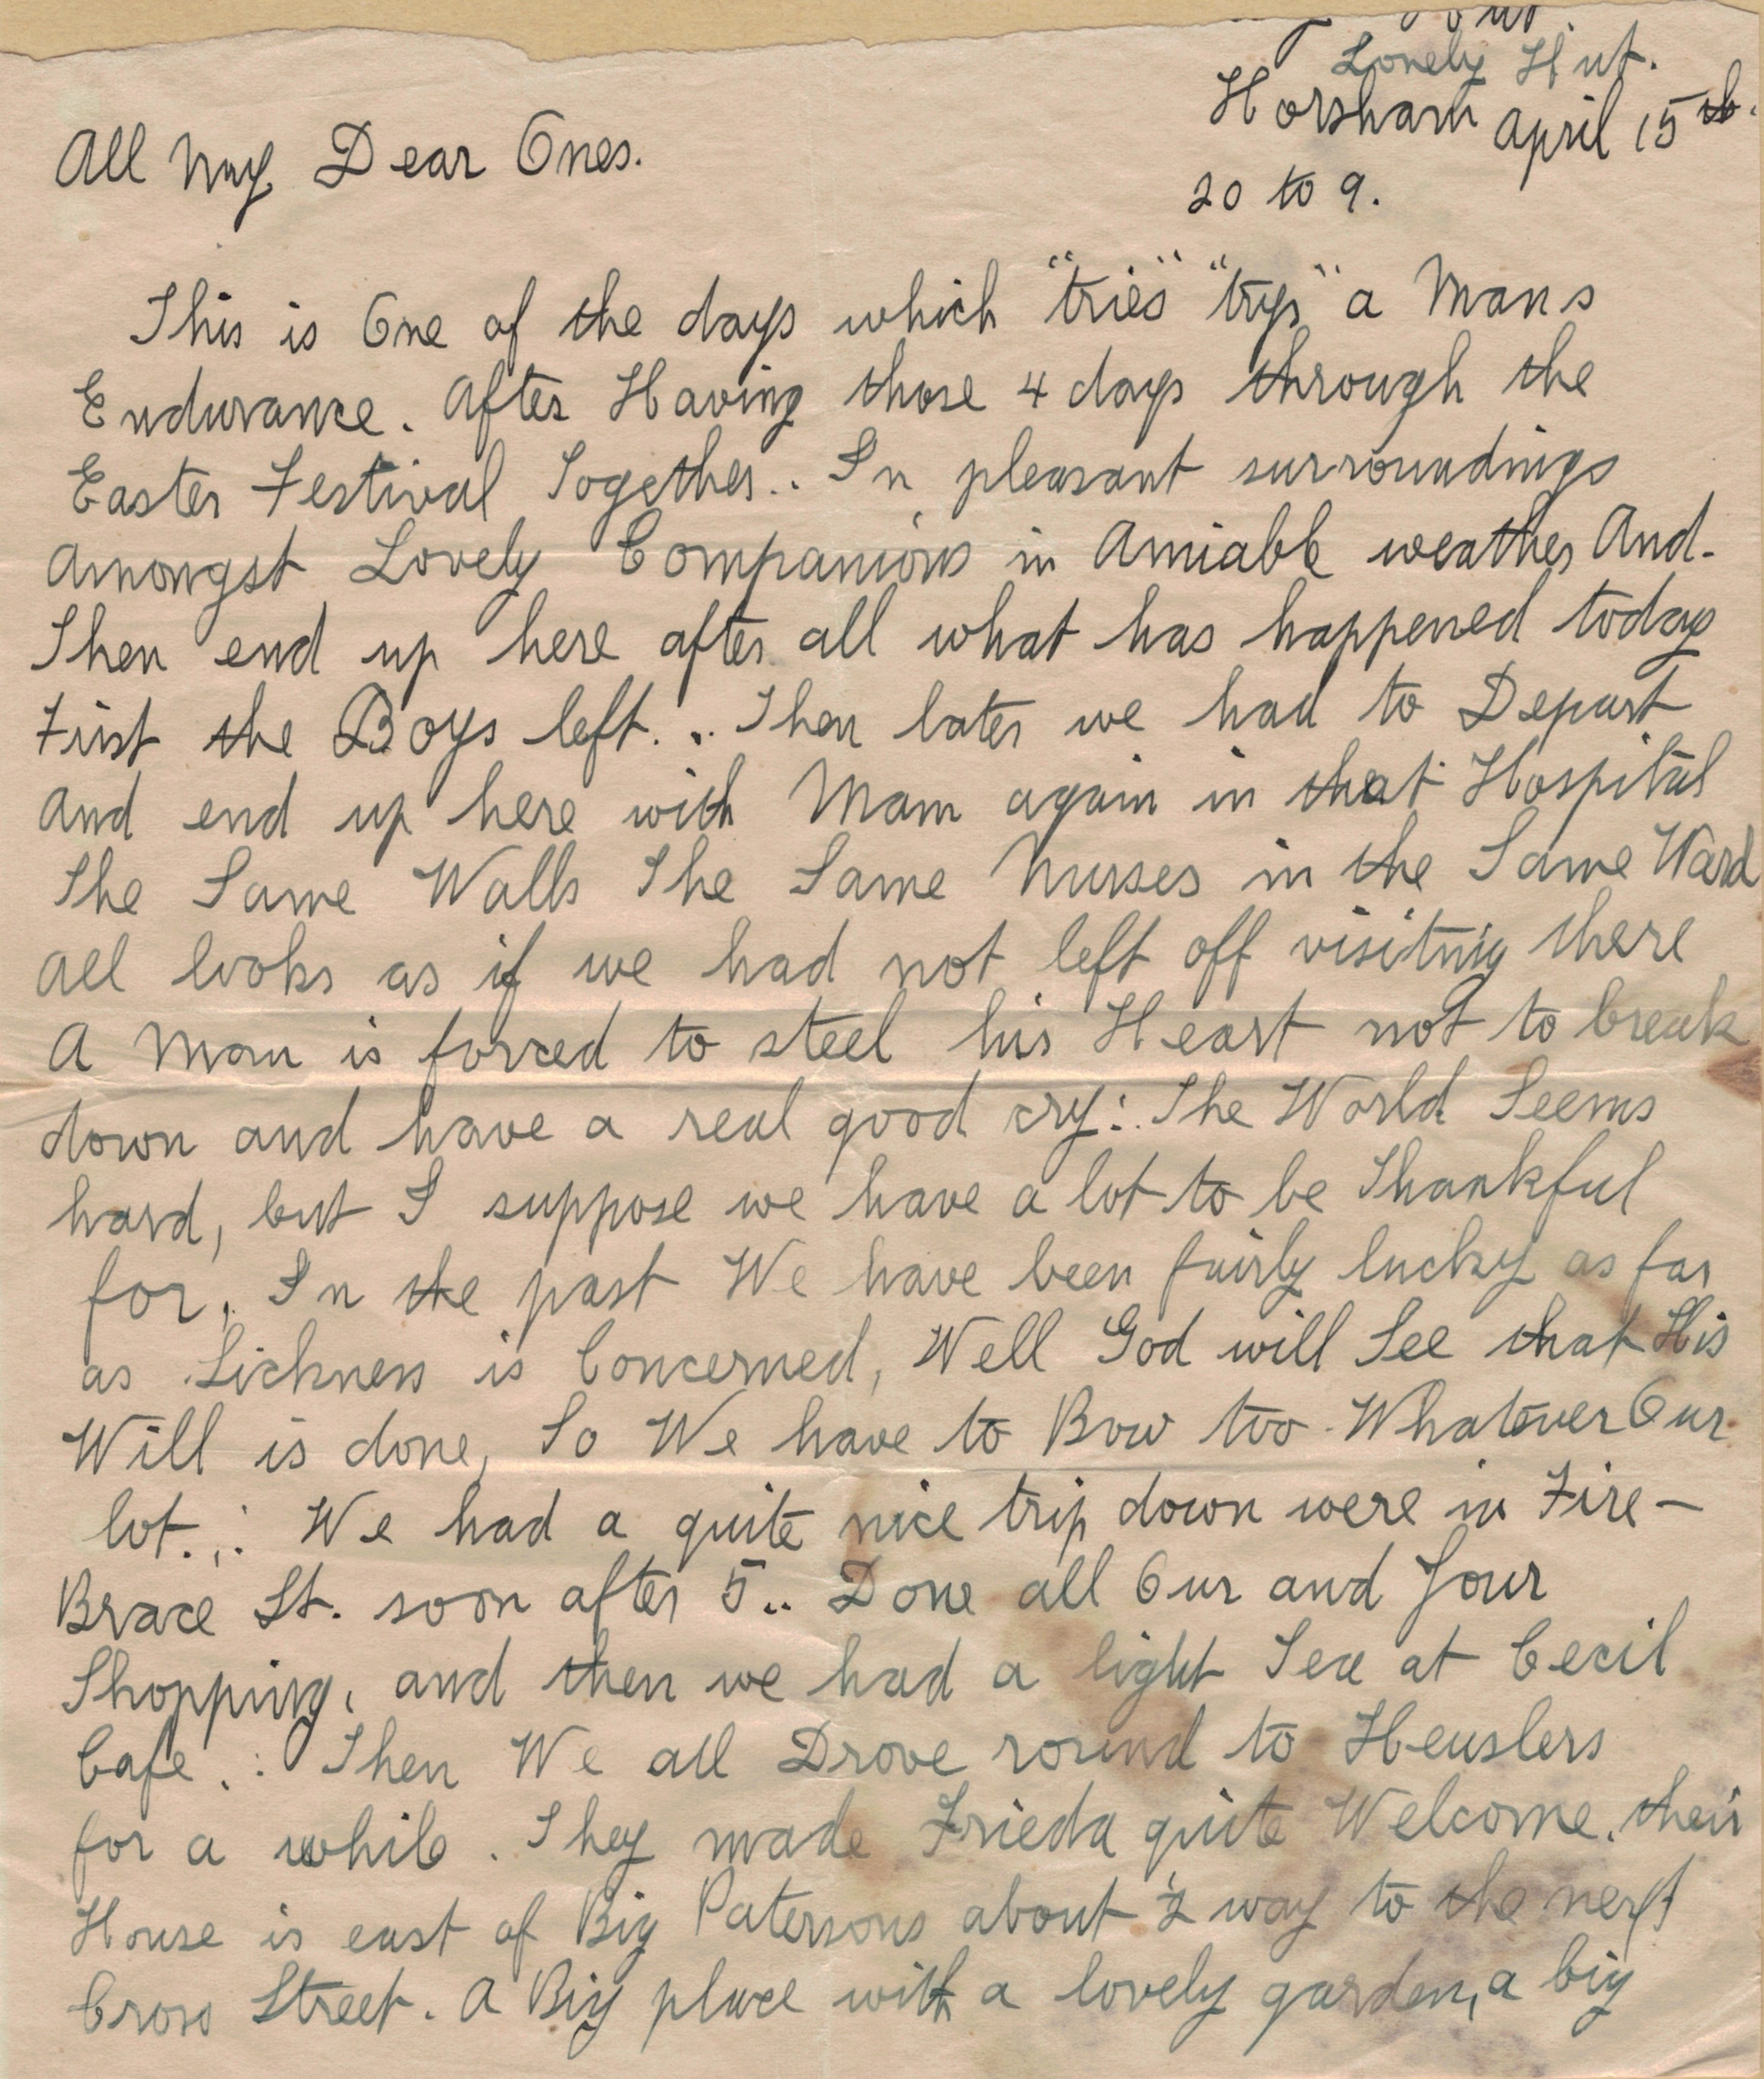 Lonely Hut.
Horsham April 15th.
20 to 9.
All My Dear Ones.
This is One of the days which "tries" "trys" a Mans
Endurance. After Having those 4 days through the
Easter Festival Together.. In pleasant surroundings
Amongst Lovely Companions in Amiable weather And-
Then end up here after all what has happened today
First the Boys left... Then later we had to Depart
And end up here with Mam again in that Hospital
The Same Walls The Same Nurses in the Same Ward
All looks as if we had not left off visiting there
A Man is forced to steel his Heart not to break
down and have a real good cry:. The World Seems
hard, but I suppose we have a lot to be Thankful
for, In the past We have been fairly lucky as far
as Sickness is Concerned, Well God will See that His
Will is done, So We have to Bow too Whatever Our
lot.,: We had a quite nice trip down were in Fire-
Brace St. soon after 5.. Done all Our and Your
Shopping, and then we had a light Tea at Cecil
Cafe.: Then We all Drove round to Heuslers
for a while. They made Frieda quite Welcome. their
House is east of Big Patersons about ½ way to the next
Cross Street. A Big place with a lovely garden, a big